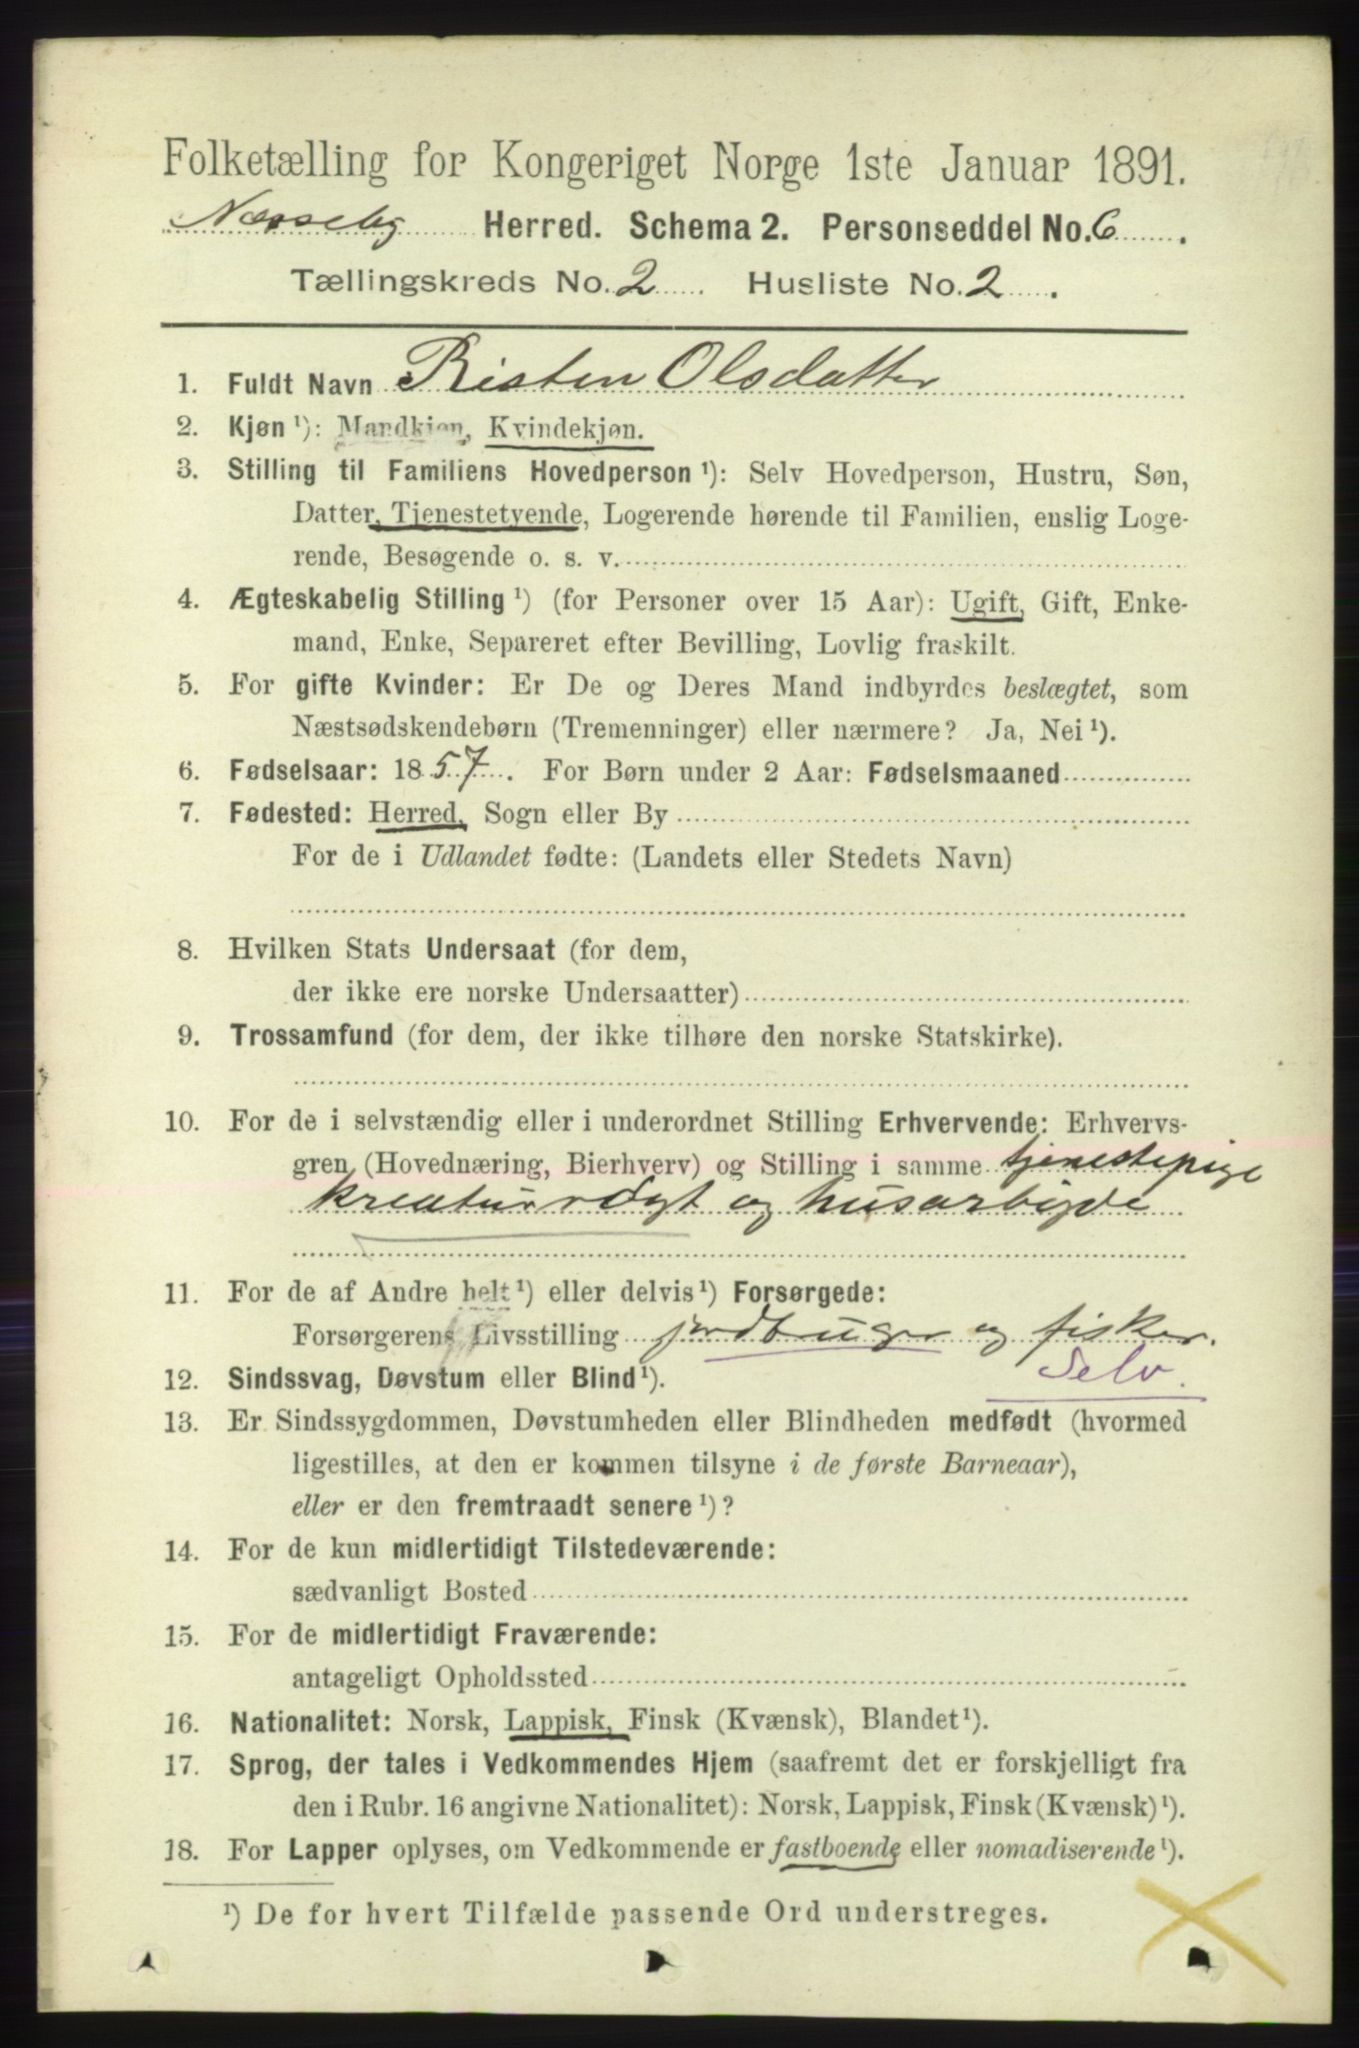 Folketælling for Kongeriget Norge 1ste Januar 1891.
Næsseby Herred. Schema 2. Personseddel No. 6.
Tællingskreds No. 2 Husliste No. 2.
1. Fuldt Navn Risten Olsdatter
2. Kjøn ¹): Mandkjøn, Kvindekjøn.
3. Stilling til Familiens Hovedperson ¹): Selv Hovedperson, Hustru, Søn,
Datter, Tjenestetyende, Logerende hørende til Familien, enslig Loge-
rende, Besøgende o. s. v.
4. Ægteskabelig Stilling ¹) (for Personer over 15 Aar): Ugift, Gift, Enke-
mand, Enke, Separeret efter Bevilling, Lovlig fraskilt.
5. For gifte Kvinder: Er De og Deres Mand indbyrdes beslægtet, som
Næstsødskendebørn (Tremenninger) eller nærmere? Ja, Nei ¹).
6. Fødselsaar: 1857. For Børn under 2 Aar: Fødselsmaaned
7. Fødested: Herred, Sogn eller By
For de i Udlandet fødte: (Landets eller Stedets Navn)
8. Hvilken Stats Undersaat (for dem,
der ikke ere norske Undersaatter)
9. Trossamfund (for dem, der ikke tilhøre den norske Statskirke).
10. For de i selvstændig eller i underordnet Stilling Erhvervende: Erhvervs-
gren (Hovednæring, Bierhverv) og Stilling i samme tjenestepige
kreaturrögt og husarbeide
11. For de af Andre helt ¹) eller delvis ¹) Forsørgede:
Forsørgerens Livsstilling jordbruger og fisker.
12. Sindssvag, Døvstum eller Blind ¹). Selv.
13. Er Sindssygdommen, Døvstumheden eller Blindheden medfødt (hvormed
ligestilles, at den er kommen tilsyne i de første Barneaar),
eller er den fremtraadt senere ¹)?
14. For de kun midlertidigt Tilstedeværende:
sædvanligt Bosted
15. For de midlertidigt Fraværende:
antageligt Opholdssted
16. Nationalitet: Norsk, Lappisk, Finsk (Kvænsk), Blandet ¹).
17. Sprog, der tales i Vedkommendes Hjem (saafremt det er forskjelligt fra
den i Rubr. 16 angivne Nationalitet): Norsk, Lappisk, Finsk (Kvænsk) ¹).
18. For Lapper oplyses, om Vedkommende er fastboende eller nomadiserende ¹).
¹) De for hvert Tilfælde passende Ord understreges.